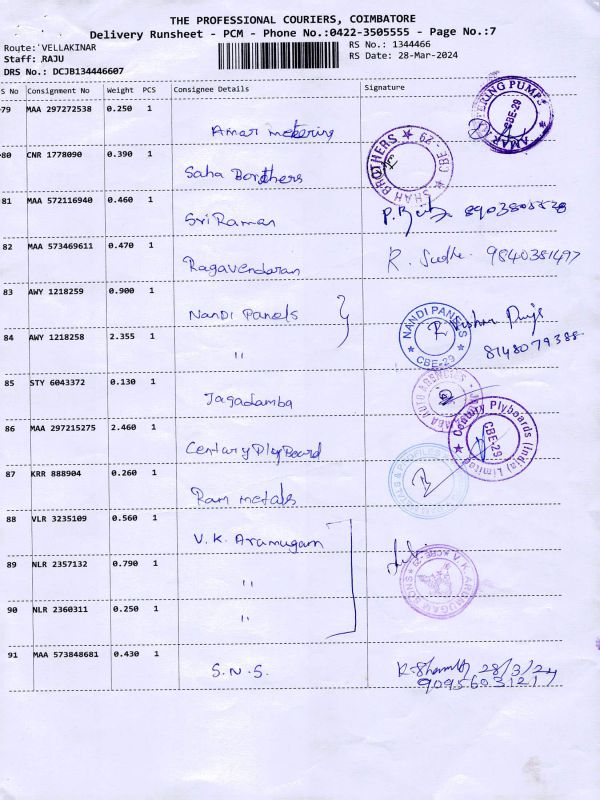 THE PROFESSIONAL COURIERS, COIMBATORE
Delivery Runsheet - PCM - Phone No.:0422-3505555 - Page No.:7
Route: VELLAKINAR
RS No.: 1344466
Staff: RAJU
RS Date: 28-Mar-2024
DRS No.: DCJB134446607
S No Consignment No Weight PCS Consignee Details Signature
79 MAA 297272538 0.250 1
Amar metering
AMAR METERING PUMPS CBE-29
80 CNR 1778090 0.390 1
Saha Borthers
SHAH BROTHERS CBE-29
81 MAA 572116940 0.460 1
Sri Raman
82 MAA 573469611 0.470 1
Ragavendaran
R. Sudha 9840381497
83 AWY 1218259 0.900 1
Nandi Panels
NANDI PANELS CBE-29
84 AWY 1218258 2.355 1
"
8148079388
85 STY 6043372 0.130 1
Jagadamba
86 MAA 297215275 2.460 1
Century Ply Board
Century Plyboards (India) Limited CBE-29
87 KRR 888904 0.260 1
Ram metals
88 VLR 3235109 0.560 1
V.K. Aramugam
89 NLR 2357132 0.790 1
"
V.K. ARUMUGAM SONS CBE-29
90 NLR 2360311 0.250 1
"
91 MAA 573848681 0.430 1
S.N.S.
28/3/24
9095603121